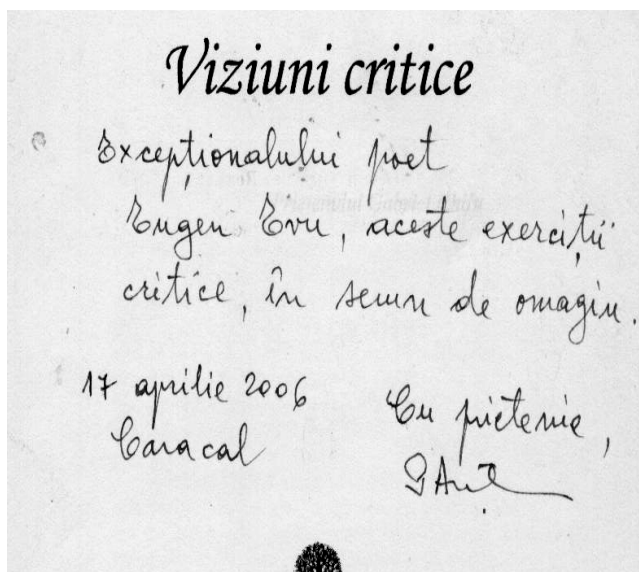 Viziuni critice
Excepționalului poet
Eugen Evu, aceste exerciții
critice, în semn de omagiu.
17 aprilie 2006
Cu prietenie,
Caracal